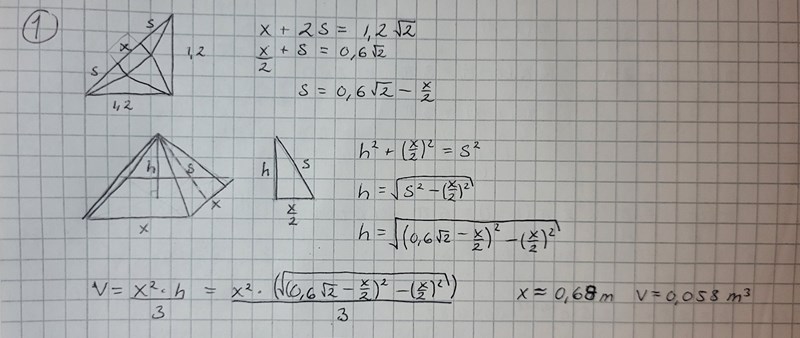 1
s
x
s
1,2
1,2
x + 2s = 1,2√2
x/2 + s = 0,6√2
s = 0,6√2 − x/2
h
s
x
x
h
s
x/2
h² + (x/2)² = s²
h = √(s² − (x/2)²)
h = √((0,6√2 − x/2)² − (x/2)²)
V = x²·h/3 = x²·(√((0,6√2 − x/2)² − (x/2)²))/3 x ≈ 0,68 m V = 0,058 m³